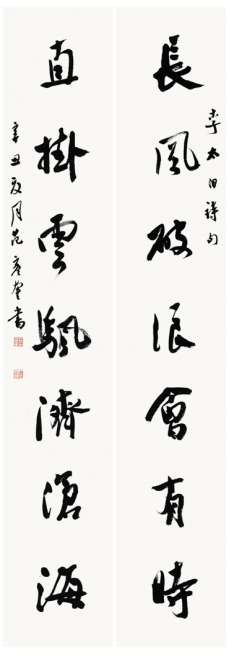 長風破浪會有時
李太白詩句
直掛雲颿濟滄海
辛丑夏月范彥奎書